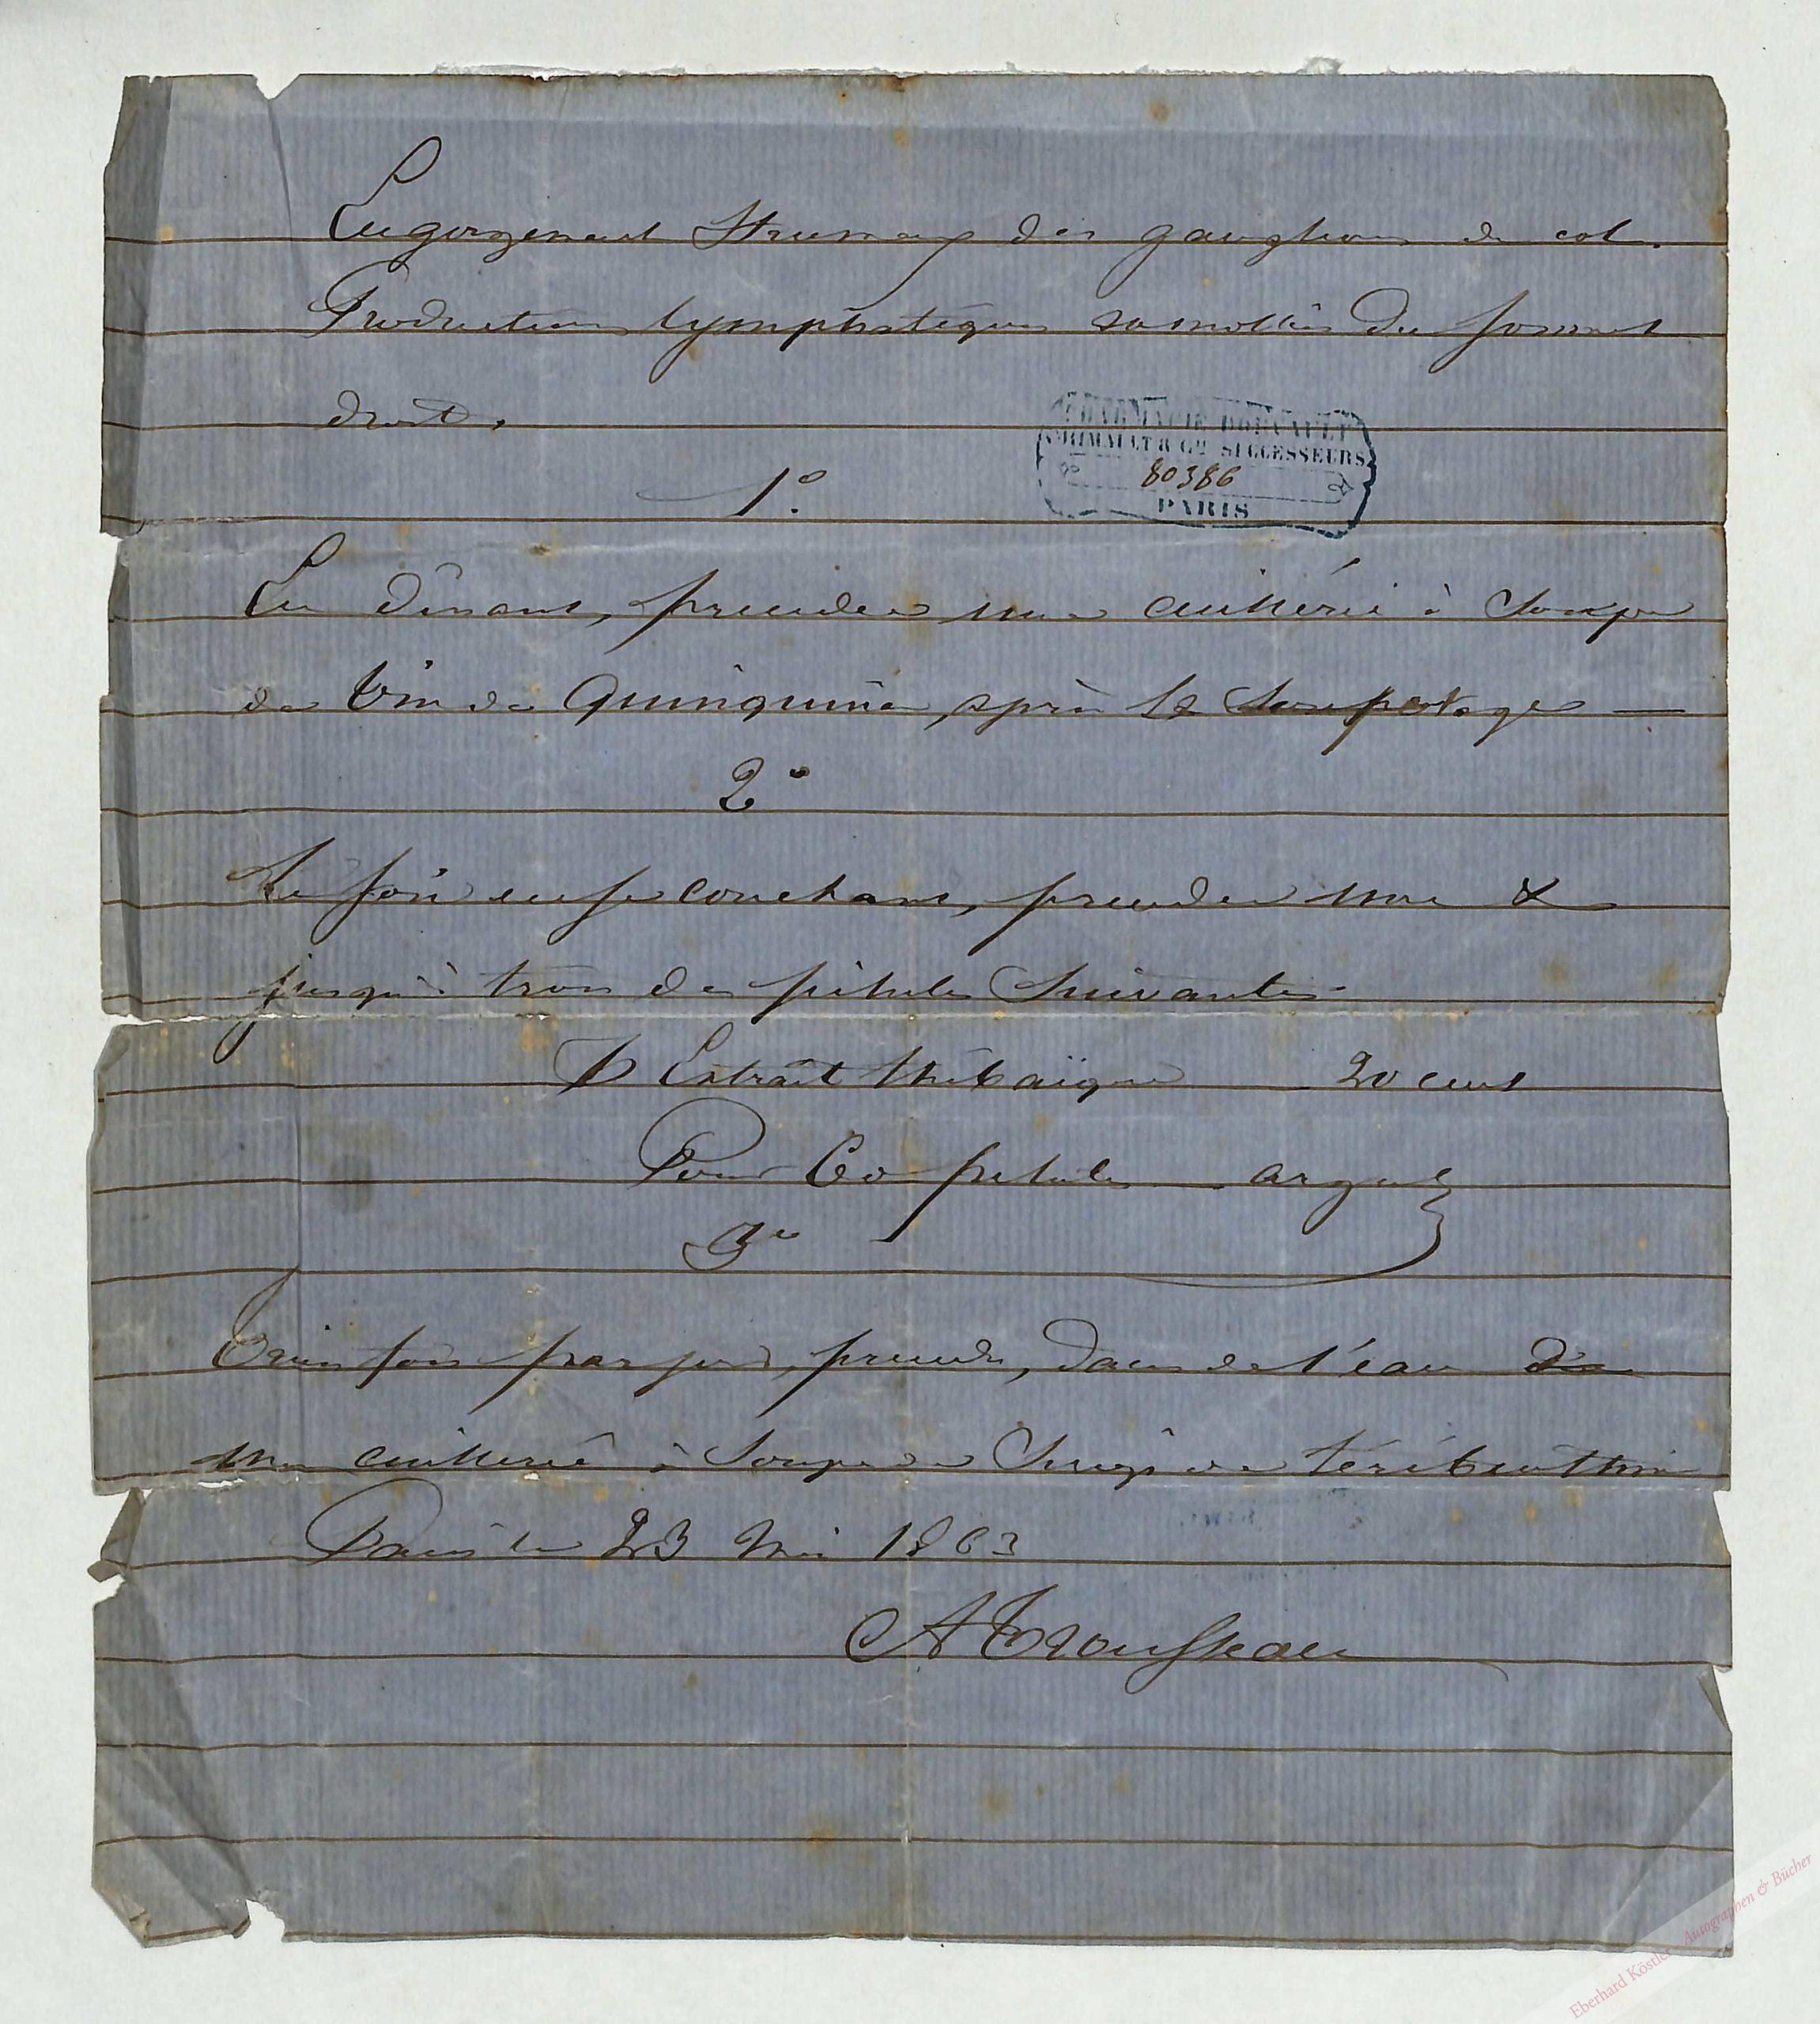 Engorgement Strumeux des ganglions du col.
Productions lymphatiques ramollies du sommet
droit.
PHARMACIE DORVAULT
GRIMAULT & Cie SUCCESSEURS
80386
PARIS
1°.
En dînant, prendre une cuillérée à Soupe
de Vin de Quinquina, après le potage —
2°
Le soir en se couchant, prendre une &
jusqu'à trois des pilules Suivantes
Extrait thébaïque 20 cent
Pour pilules argent
3°
Trois fois par jour, prendre, dans de l'eau
une cuillerée à Soupe de Sirop de térébenthine
Paris le 23 Mai 1863
A Trousseau
Eberhard Köstler Autographen & Bücher